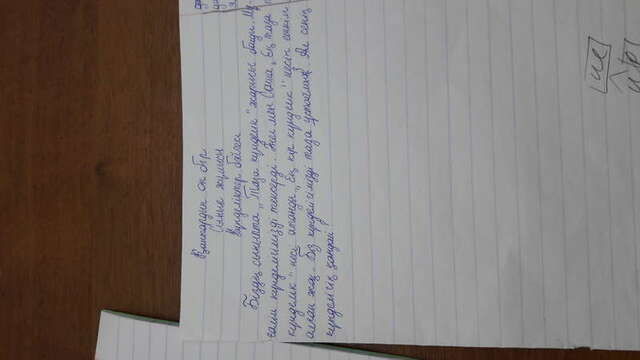 Қаңтардың он бір
Сынып жұмысы
Күнделіктер бәйгесі
Біздің сыныпта „Таза күнделік" жарысы болды. Мұ
ғалім күнделігімізді тексерді. Әсем мен Саша „Ең таза
күнделік" иесі атанды. „Ең кір күнделік" иесін ешкім
алған жоқ. Біз күнделігімізді таза ұстаймыз. Ал сенің
күнделігің қандай